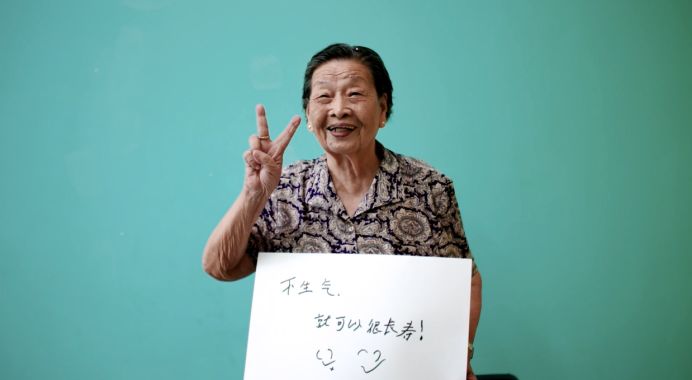 不生气.
就可以很长寿!